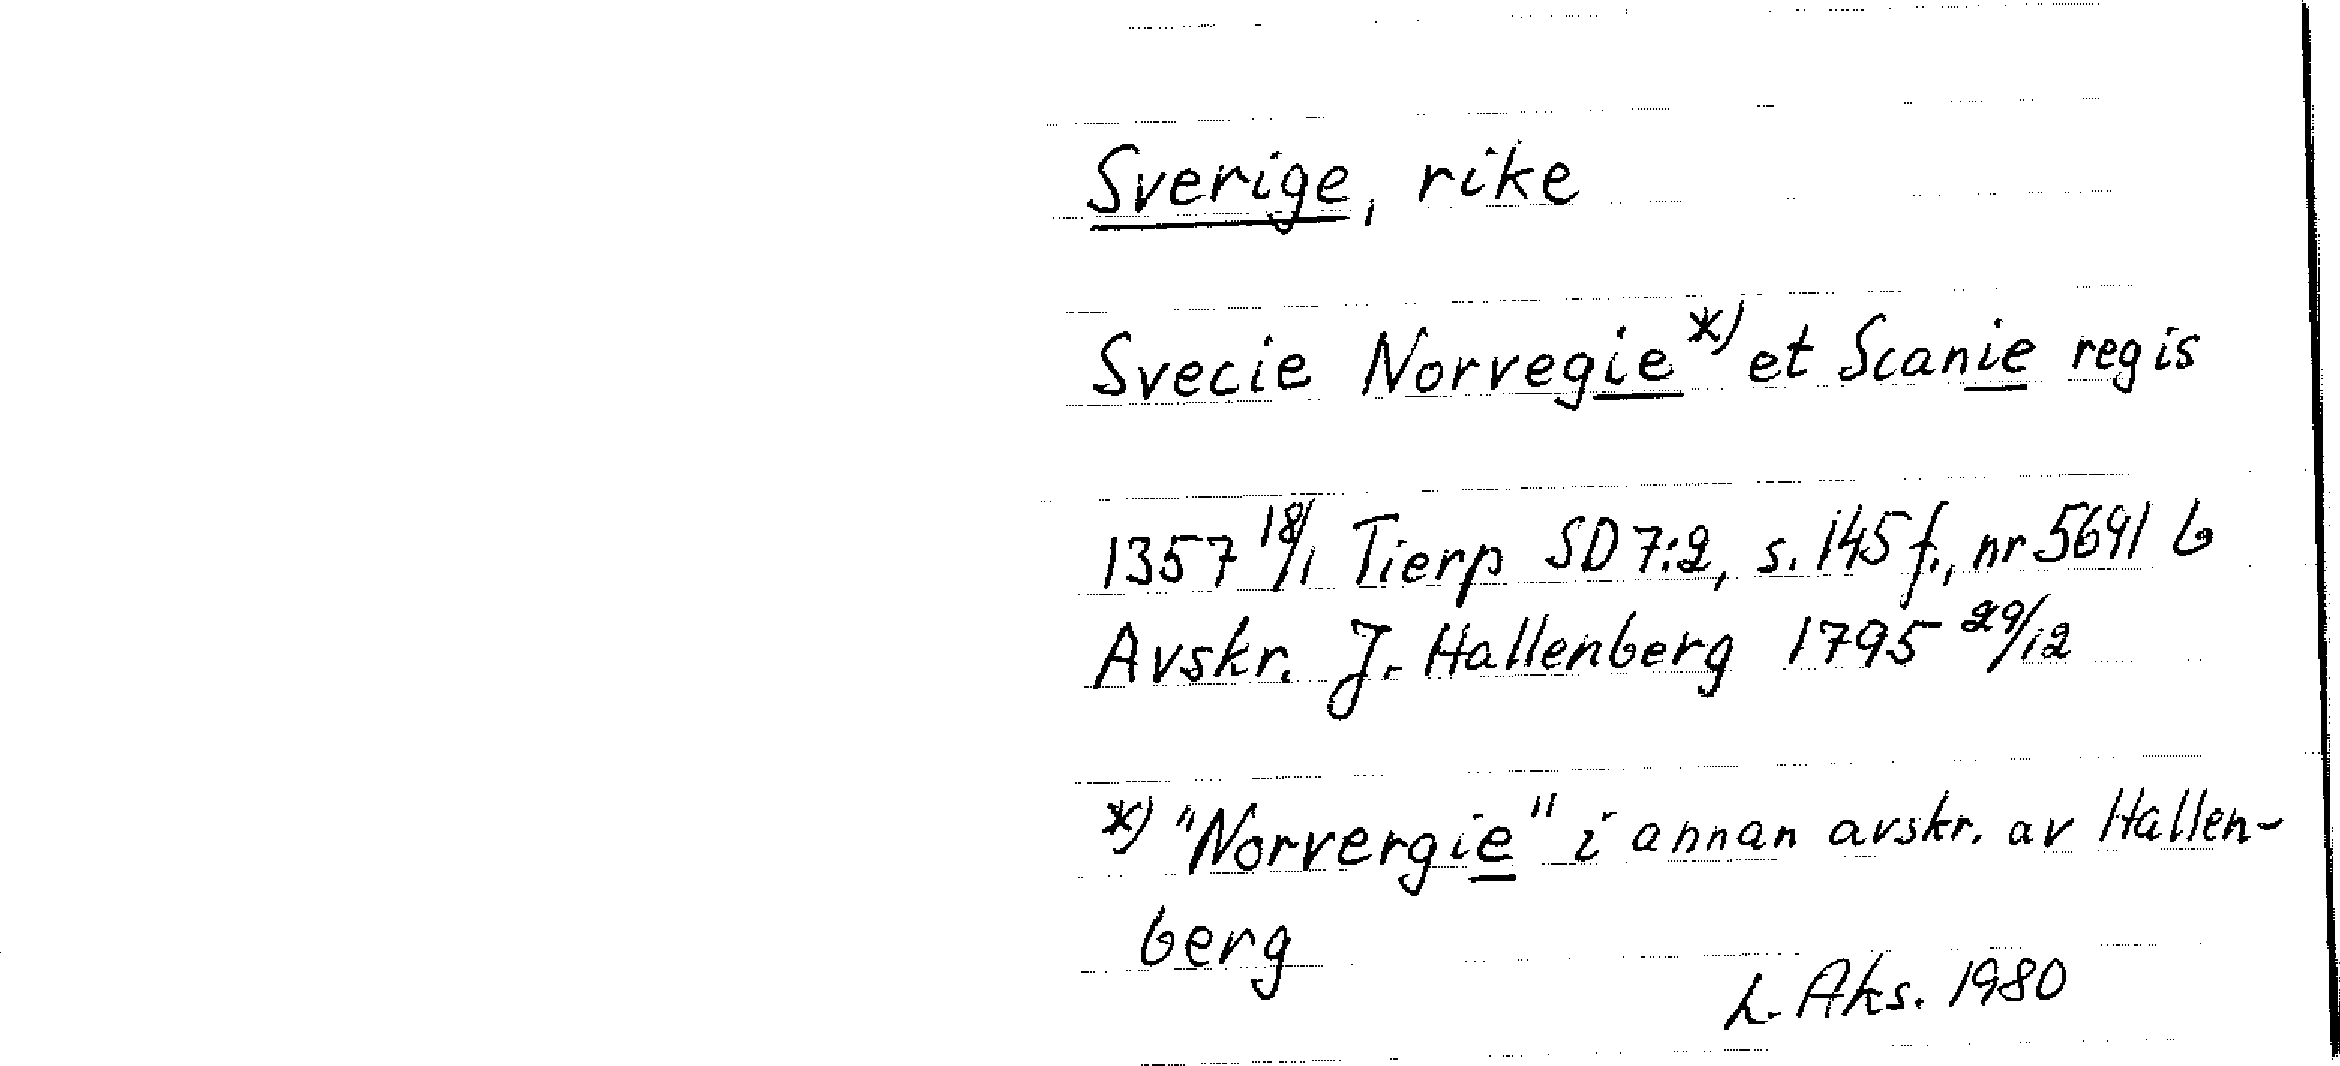 Sverige, rike
Svecie Norvegie *) et Scanie regis
1357 18/1 Tierp SD 7:2, s. 145 f., nr 5691 b
Avskr. J. Hallenberg 1795 29/12
*) "Norvergie" i annan avskr. av Hallen-
berg
L. Aks. 1980